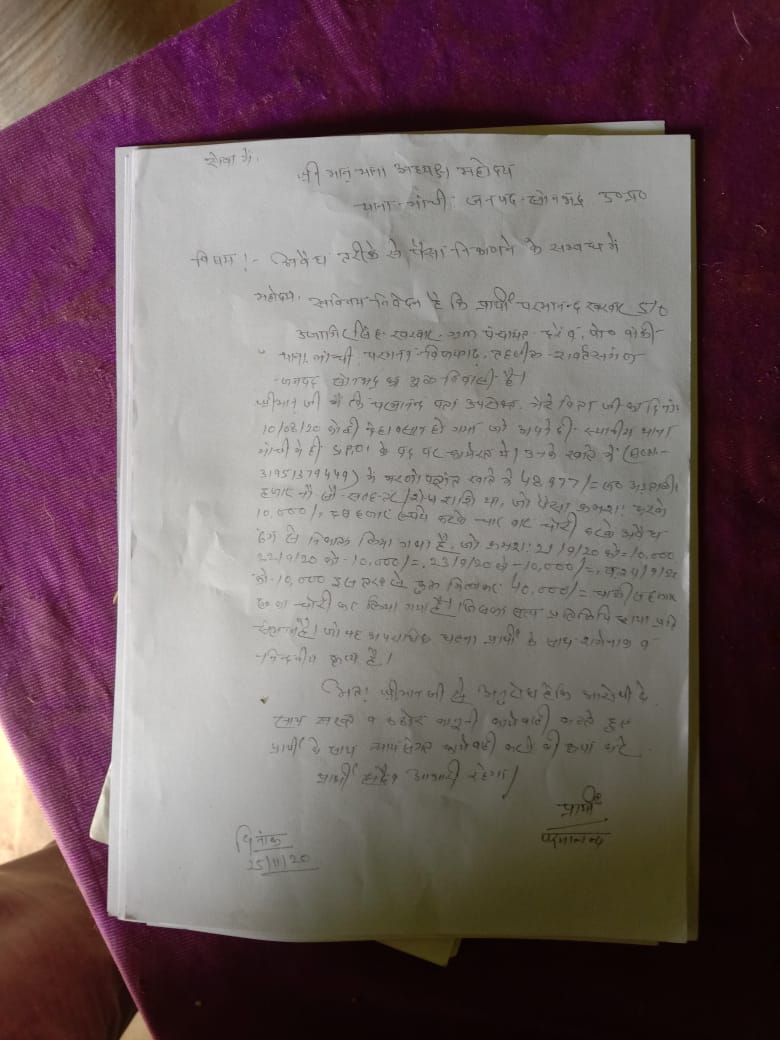 सेवा में,
श्री मान् थाना अध्यक्ष महोदय
थाना - मांची जनपद - सोनभद्र उ०प्र०
विषय :- अवैध तरीके से पैसा निकालने के सम्बन्ध में
महोदय, सविनय निवेदन है कि प्रार्थी परमानन्द खरवार S/O
सिंह खरवार, ग्राम पंचायत पो०
थाना मांची परगना - विजयगढ़, तहसील - राबर्ट्सगंज
जनपद सोनभद्र का मूल निवासी है।
श्रीमान् जी मैं कि परमानन्द पता उपरोक्त, मेरे पिता जी का दिनांक
10/08/20 को ही देहावसान हो गया जो आपके ही स्थानीय थाना
मांची में ही के पद पर कार्यरत थे। उनके खाते में
31951379449) में मरणोपरांत खाते में 48977/=
हजार नौ सौ सतहत्तर रुपये राशि था, जो पैसा क्रमशः करके
10,000/= दस हजार रूपये करके चार बार चोरी करके अवैध
ढंग से निकाल लिया गया है, जो क्रमशः 21/9/20 को = 10,000
22/9/20 को - 10,000/=, 23/9/20 को - 10,000/=, व 24/9/20
को - 10,000 इस तरह से कुल मिलाकर 40,000/= चालीस हजार
रूपया चोरी कर लिया गया है। जिसका सत्य प्रतिलिपि छाया प्रति
संलग्न है। जो यह अपराधिक घटना प्रार्थी के साथ शर्मनाक व
निन्दनीय कृत्य है।
अतः श्रीमान जी से अनुरोध है कि आरोपी के
साथ सख्त व कठोर कानूनी कार्यवाही करते हुए
प्रार्थी के साथ न्याय संगत कार्यवाही करने की कृपा करें
प्रार्थी सदैव आभारी रहेगा।
प्रार्थी
परमानन्द
दिनांक
25/11/20